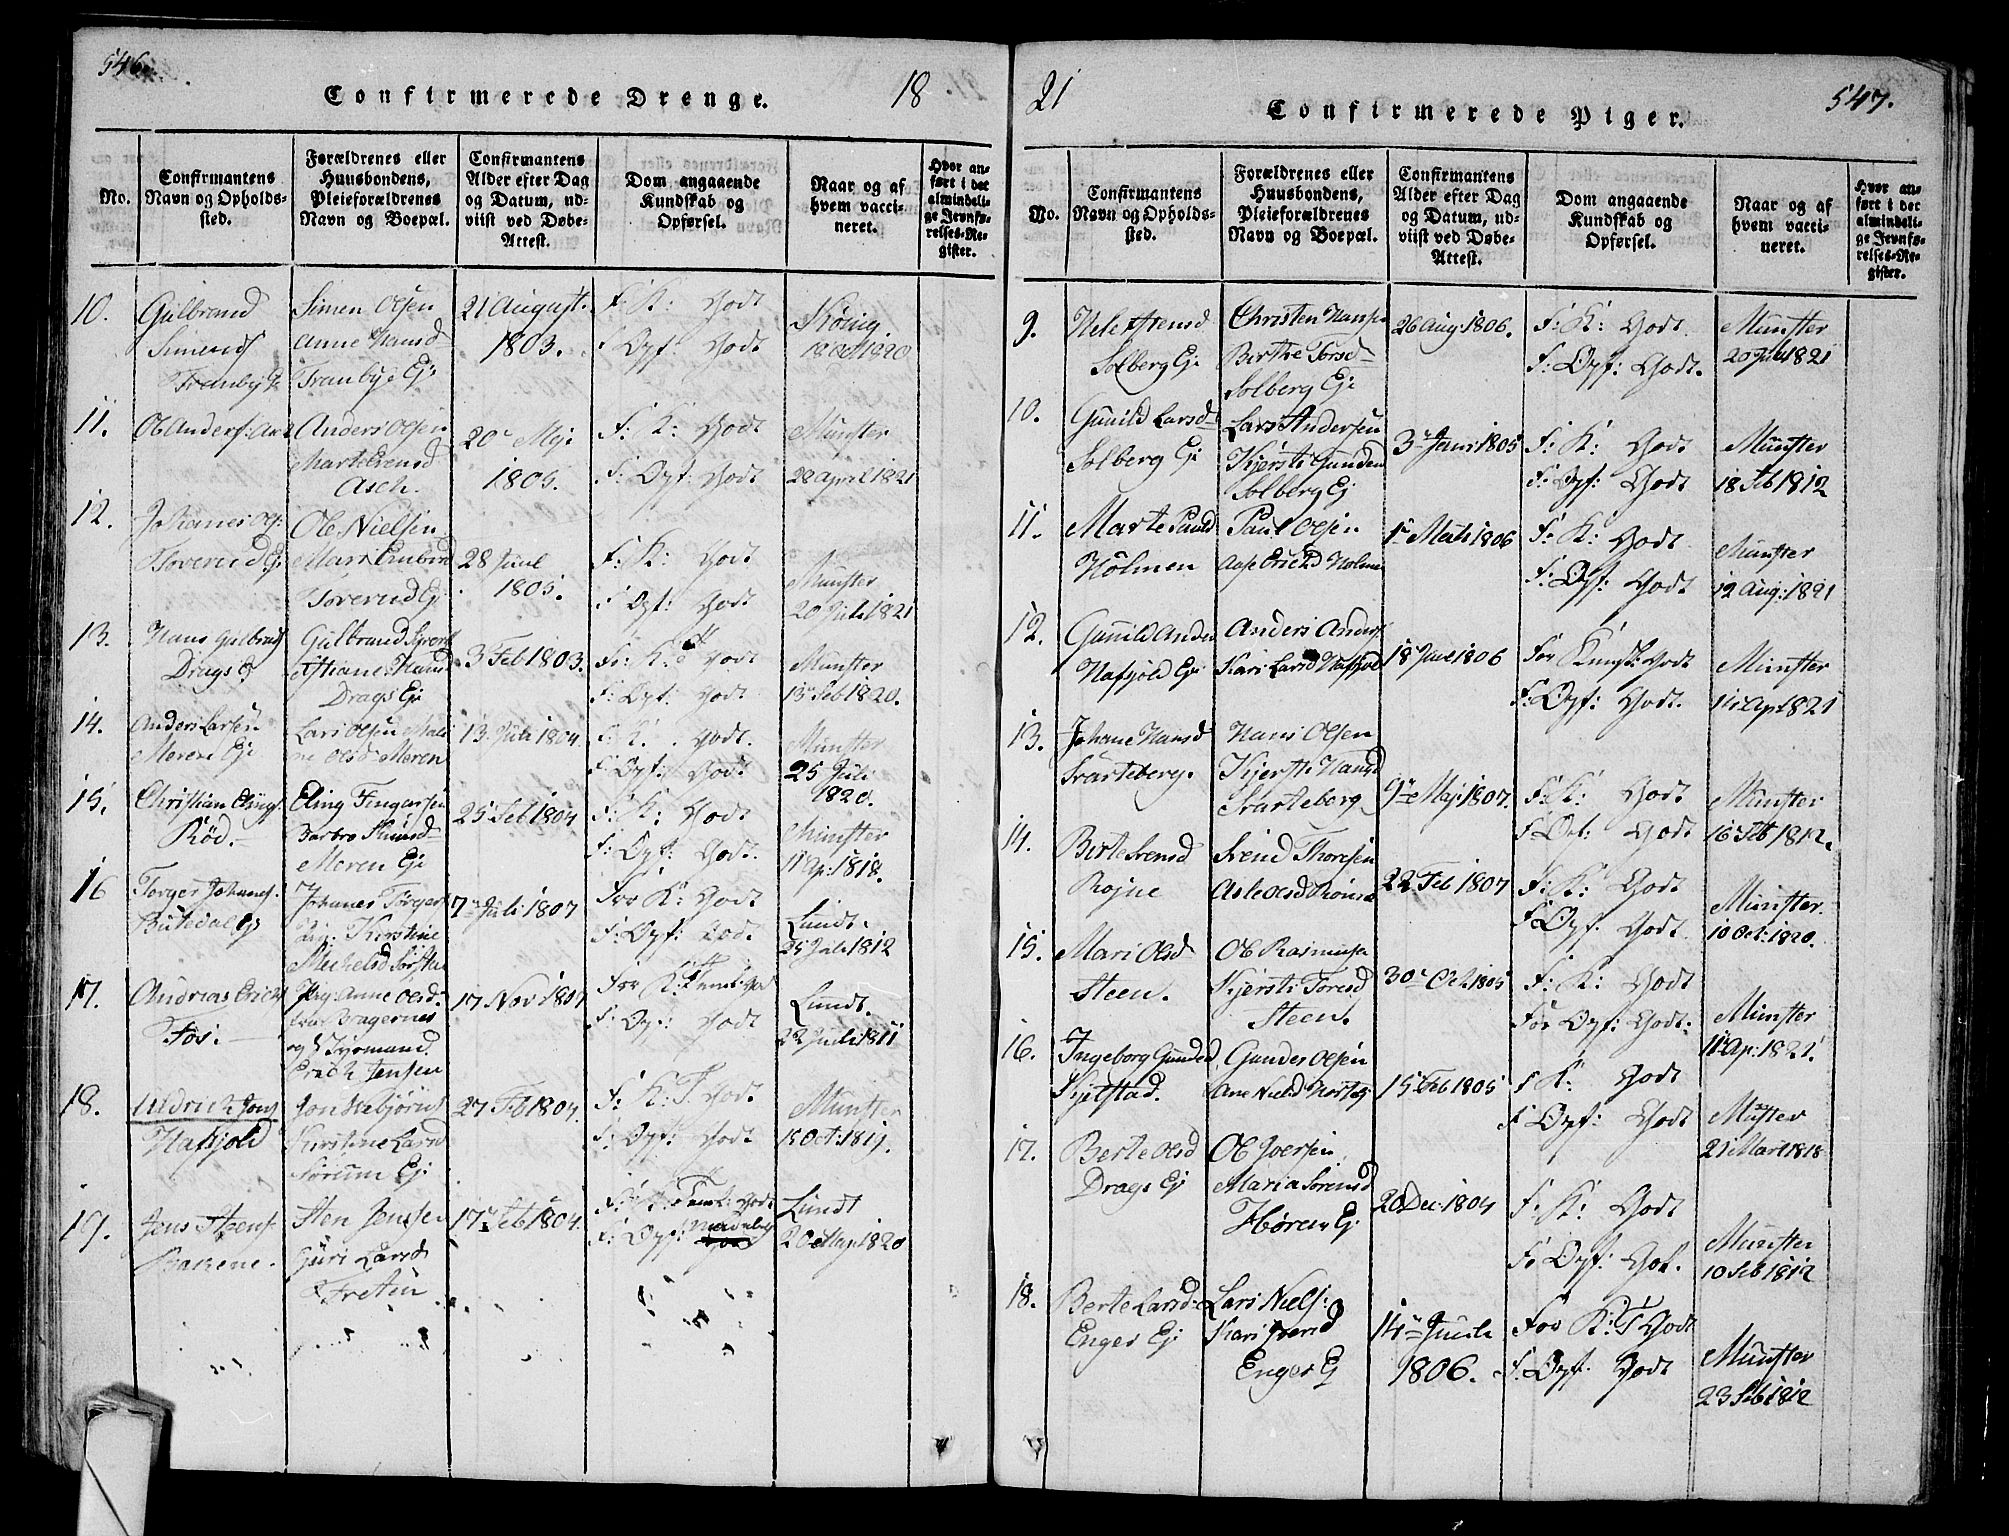 546.
Confirmerede Drenge.
18
No.
Confirmantens Navn og Opholdssted.
Forældrenes eller Huusbondens, Pleieforældrenes Navn og Boepæl.
Confirmantens Alder efter Dag og Datum, udviist ved Døbe-Attest.
Dom angaaende Kundskab og Opførsel.
Naar og af hvem vaccineret.
Hvor anført i det almindelige Jevnførelses-Register.
10.
Gulbrand
Simens
Simen Olsen
Anne Hansd
Tranbye Ej:
21 August.
1803.
F: K: Godt
F: Opf: Godt
18 Oct 1820
11.
Ole Anders:
Anders Olsen
Asch.
20 Mej:
1805.
F: K: Godt
F: Opf: Godt
Munster
28 April 1821
12.
Johanes Ols:
Toverud Ej:
Ole Nielsen
Toverud Ej
28 Juul
1805.
F: K: Godt
F: Opf: Godt
Munster
20 Juli 1821
13.
Hans Gulbrands
Drags Ej
Gulbrand
Drags Ej:
3 Feb 1803.
F: K: Godt
F: Opf: Godt
Munster
13 Feb 1820.
14.
Anders Larsen
Meren Ej:
Lars Olsen Male
ne Olsd Meren
13. Juli 1804
F: K: Godt.
F: Opf: Godt
Munster
25 Juli
1820.
15.
Christian Elings
Röd.
Eling Fingarsen
Meren Ej:
25 Feb 1804
F: K: Godt
F: Opf: Godt.
Munster
11 Ap: 1818.
16
Torger Johans:
Johanes Torger
Kirstine
Michelsd
7 Juli 1807
For K: Godt
F: Opf: Godt
Lundt
25 Juli 1812
17.
Andreas Erichs
Fos.
Pig: Anne Olsd:
Bragernes
Erich Jensen
17 Nov 1807
For K: Teml: God
F: Opf: Godt
Lundt
22 Juli 1811
18.
Uldrich Jons
Hafsjold
Jon
Kirstine Larsd
Sörum Ej:
27 Feb 1804.
F: K: T. Godt
F: Opf: Godt
Munster
18 Oct: 1819.
19.
Jens Steens
Sten Jenssen
Guri Larsd
17 Feb 1804.
F: K: Teml: Godt
F: Opf:
Lundt
20 Maj: 1820
21
Confirmerede Piger.
547.
No.
Confirmantens Navn og Opholdssted.
Forældrenes eller Huusbondens, Pleieforældrenes Navn og Boepæl.
Confirmantens Alder efter Dag og Datum, udviist ved Døbe-Attest.
Dom angaaende Kundskab og Opførsel.
Naar og af hvem vaccineret.
Hvor anført i det almindelige Jevnførelses-Register.
9.
Solberg Ej:
Christen Hansen
Berthe
Solberg Ej:
26 Aug 1806.
F: K: Godt.
F: Opf: Godt.
Munster
1821
10.
Gunild Larsd
Solberg Ej:
Lars Andersen
Kjersti Gunders
Solberg Ej
3 Janr: 1805
F: K: Godt
F: Opf: Godt
Munster
18 Feb 1812
11.
Marte Pauld
Holmen
Paul Olsen
Aase Erichsd Holmen
1806
F: K: Godt
F: Opf: Godt
Munster
12 Aug: 1821
12.
Gunild Anders
Hafsjold Ej:
Anders Anders
Kari Larsd
18 1806
For Kundsk: Godt
F: Opf: Godt.
Munster
1821
13.
Johane Hansd
Svarteberg.
Hans Olsen
Kjersti Hansd
Svarteberg
9 Maj: 1807.
F: K: Godt
F: Opf: Godt
Munster
16 Feb 1812.
14.
Berte Svensd
Rojne
Svend Thoresen
22 Feb 1807
F: K: Godt
F: Opf: Godt
Munster.
10 Oct: 1820.
15.
Mari Olsd
Steen.
Ole Rasmusen
Kjersti Toresd
Steen.
30 Oct. 1805
F: K: Godt
For Opf: Godt:
Munster
11 Ap: 1821.
16.
Ingeborg Gundersd
Gunder Olsen
Ane Nielsd
15 Feb 1805
F K: Godt
F Opf: Godt
Munster
21 Mart 1818
17.
Berte Olsd
Drags Ej
Ole Joersen
Maria Sorensd
Hören Ej
20 Dec: 1804
F: K: Godt
F: Opf: Got.
Munster
10 Feb 1812
18.
Berte Larsd
Enger Ej
Lars Niels:
Kari
Enger Ej
14 Junli
1806.
For K: T Godt
F: Opf: Godt
Munster
23 Feb 1812